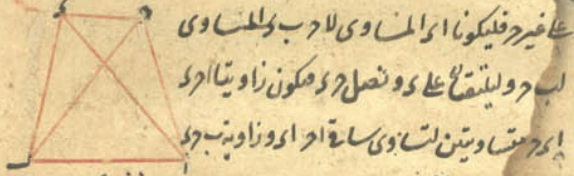 على غير ح فليكونا ا ء المساوى لا ح ب ء المساوى
لب ح و ليلتقيا على ء و نصل ح ء فيكون زاويتا ا ح ء
ا ء ح متساويتين لتساوى ساقى ا ح ا ء و زاويتا ب ح ء